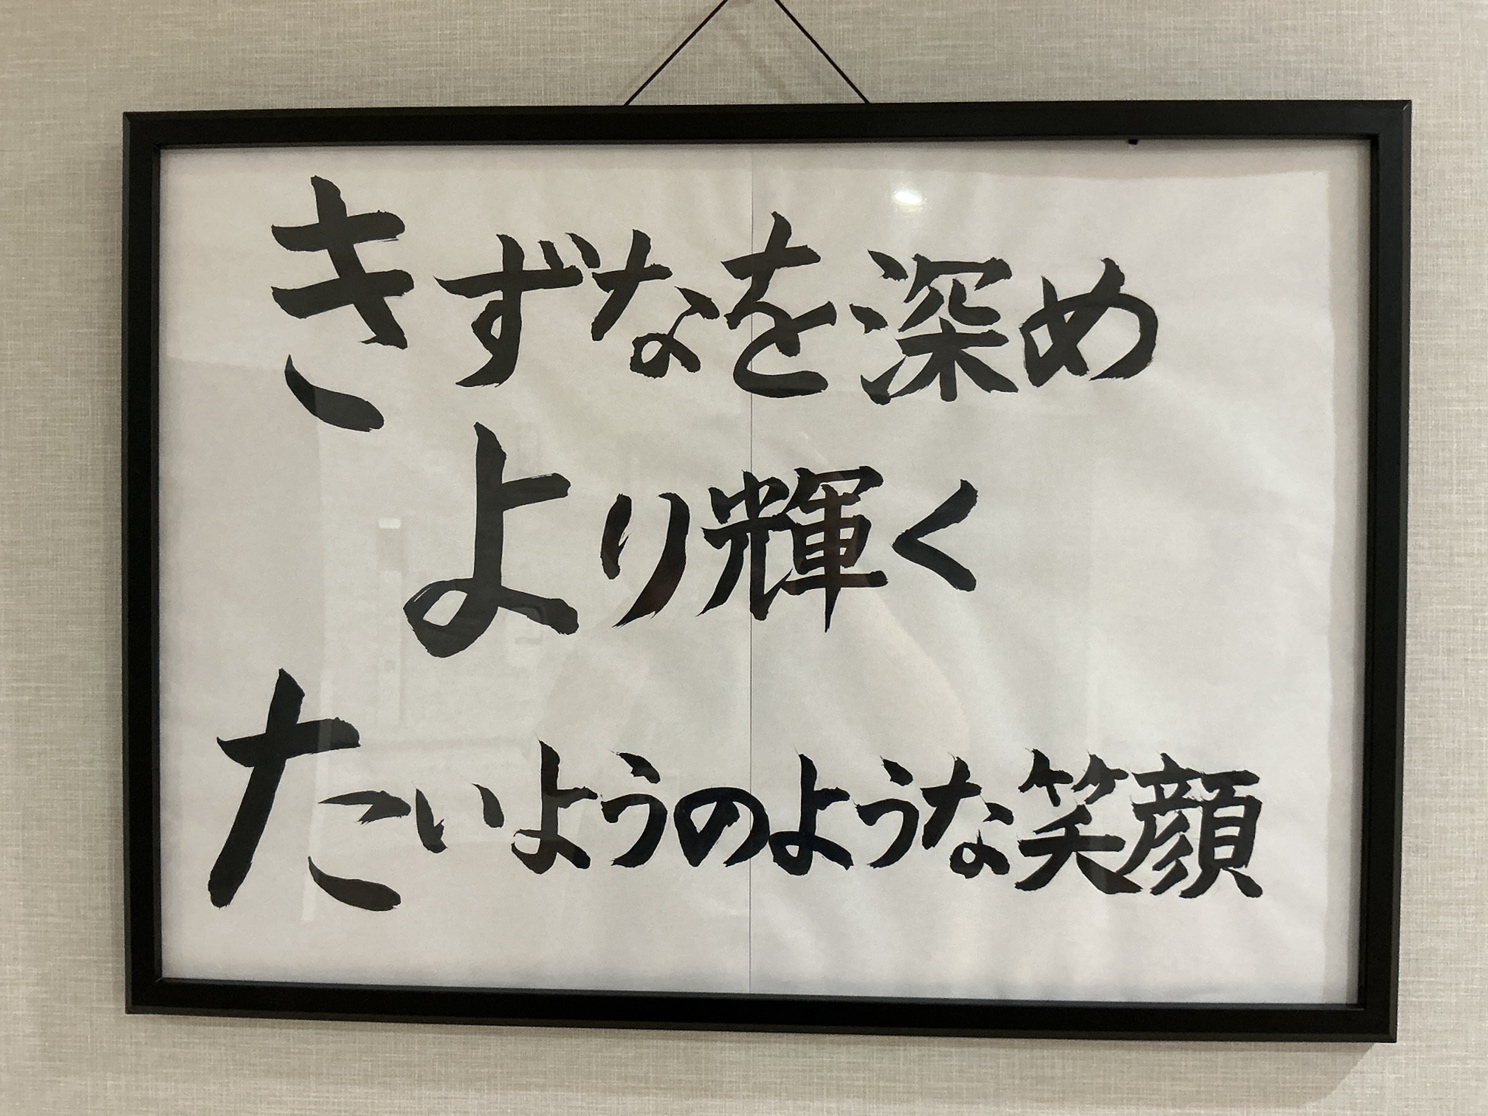 きずなを深め
より輝く
たいようのような笑顔